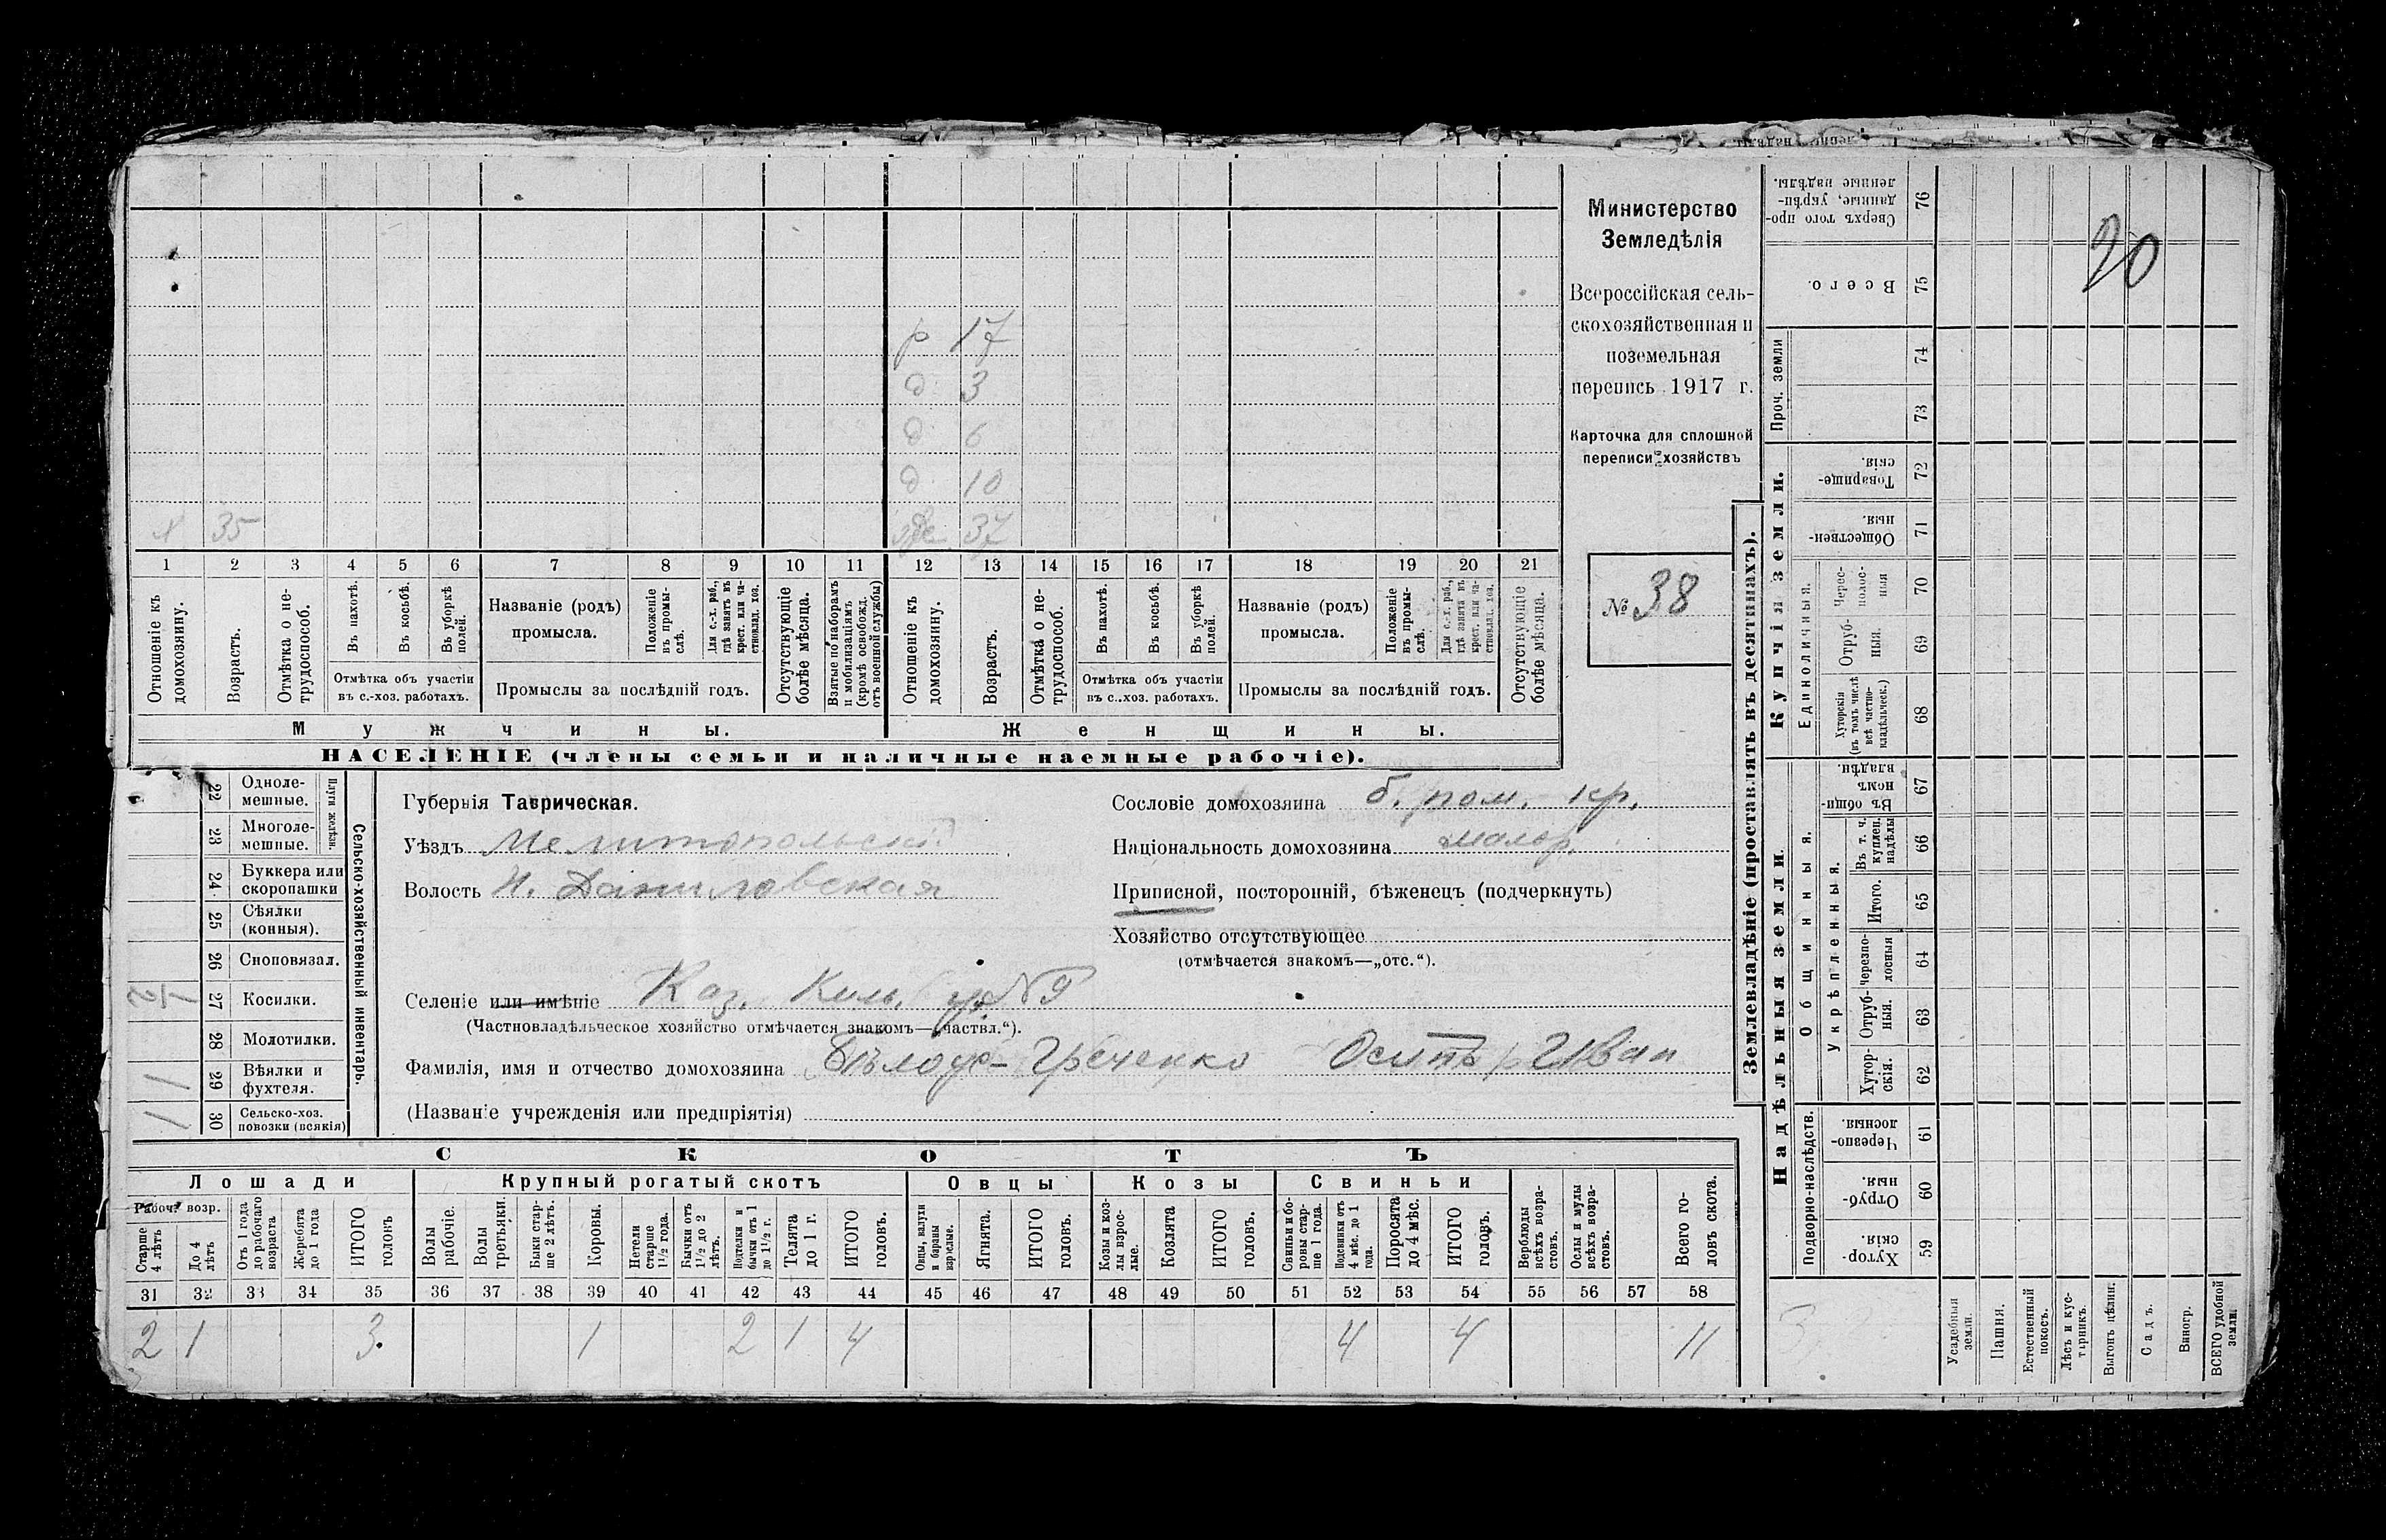 Министерство
Земледѣлія
Всероссійская сель-
скохозяйственная и
поземельная
перепись 1917 г.
Карточка для сплошной
переписи хозяйствъ
№ 38
20
р 17
д 3
д 6
д 10
37
х 35
1 2 3 4 5 6 7 8 9 10 11 12 13 14 15 16 17 18 19 20 21
Отношеніе къ домохозяину.
Возрастъ.
Отмѣтка о не-трудоспособ.
Въ пахотѣ.
Въ косьбѣ.
Въ уборкѣ полей.
Отмѣтка объ участіи
въ с.-хоз. работахъ.
Названіе (родъ)
промысла.
Положеніе въ промы-слѣ.
Для с.-х. раб., гдѣ занятъ въ крест. или ча-стновлад. хоз.
Промыслы за послѣдній годъ.
Отсутствующіе болѣе мѣсяца.
Взятые по наборамъ и мобилизаціямъ (кромѣ освобожд. отъ военной службы)
Отношеніе къ домохозяину.
Возрастъ.
Отмѣтка о не-трудоспособ.
Въ пахотѣ.
Въ косьбѣ.
Въ уборкѣ полей.
Отмѣтка объ участіи
въ с.-хоз. работахъ.
Названіе (родъ)
промысла.
Положеніе въ промы-слѣ.
Для с.-х. раб., гдѣ занята въ крест. или ча-стновлад. хоз.
Промыслы за послѣдній годъ.
Отсутствующіе болѣе мѣсяца.
Мужчины. Женщины.
НАСЕЛЕНІЕ (члены семьи и наличные наемные рабочіе).
Сельско-хозяйственный инвентарь.
Плуги желѣзн.
22 Одноле-мешные.
23 Многоле-мешные.
24 Буккера или скоропашки
25 Сѣялки (конныя).
26 Сноповязал.
27 Косилки. 1/2
28 Молотилки.
29 Вѣялки и фухтеля. 1
30 Сельско-хоз. повозки (всякія) 1
Губернія Таврическая.
Уѣздъ Мелитопольскій
Волость Н. Даниловская
Сословіе домохозяина б. пом. кр.
Національность домохозяина малор.
Приписной, посторонній, бѣженецъ (подчеркнуть)
Хозяйство отсутствующее
(отмѣчается знакомъ—„отс.“).
Селеніе или имѣніе Каз.
(Частновладѣльческое хозяйство отмѣчается знакомъ—„частвл.“).
Фамилія, имя и отчество домохозяина Греченко Осипъ Иван
(Названіе учрежденія или предпріятія)
СКОТЪ
Лошади Крупный рогатый скотъ Овцы Козы Свиньи
Рабоч. возр.
Старше 4 лѣтъ
До 4 лѣтъ
Отъ 1 года до рабочаго возраста
Жеребята до 1 года
ИТОГО головъ
Волы рабочіе.
Волы третьяки.
Быки стар-ше 2 лѣтъ.
Коровы.
Нетели старше 1½ года.
Бычки отъ 1½ до 2 лѣтъ.
Подтелки и бычки отъ 1 до 1½ г.
Телята до 1 г.
ИТОГО головъ.
Овцы, валухи и бараны взрослые.
Ягнята.
ИТОГО головъ.
Козы и коз-лы взрос-лые.
Козлята
ИТОГО головъ.
Свиньи и бо-ровы стар-ше 1 года.
Подсвинки отъ 4 мѣс. до 1 года.
Поросята до 4 мѣс.
ИТОГО головъ.
Верблюды всѣхъ возра-стовъ.
Ослы и мулы всѣхъ возра-стовъ.
Всего го-ловъ скота.
31 32 33 34 35 36 37 38 39 40 41 42 43 44 45 46 47 48 49 50 51 52 53 54 55 56 57 58
2 1 3. 1 2 1 4 4 4 11
Землевладѣніе (проставлять въ десятинахъ).
Купчія земли.
Надѣльныя земли
Сверхъ того про-данные, укрѣп-ленные надѣлы. 76
Всего. 75
Проч. земли
74
73
Товарище-скія. 72
Обществен-ныя. 71
Единоличныя.
Черес-полос-ныя 70
Отруб-ныя. 69
Хуторскія (въ томъ числѣ всѣ частно-владѣльческ.) 68
Общинныя.
Въ общи-номъ владѣн. 67
Укрѣпленныя.
Въ т. ч. куплен. надѣлы 66
Итого. 65
Черезпо-лосныя 64
Отруб-ныя. 63
Хутор-скія. 62
Подворно-наслѣдств.
Черезпо-лосныя. 61
Отруб-ныя. 60
Хутор-скія. 59
Усадебныя земли.
Пашня.
Естественный покосъ.
Лѣсъ и кус-тарникъ.
Выгонъ цѣлин.
Садъ.
Виногр.
ВСЕГО удобной земли.